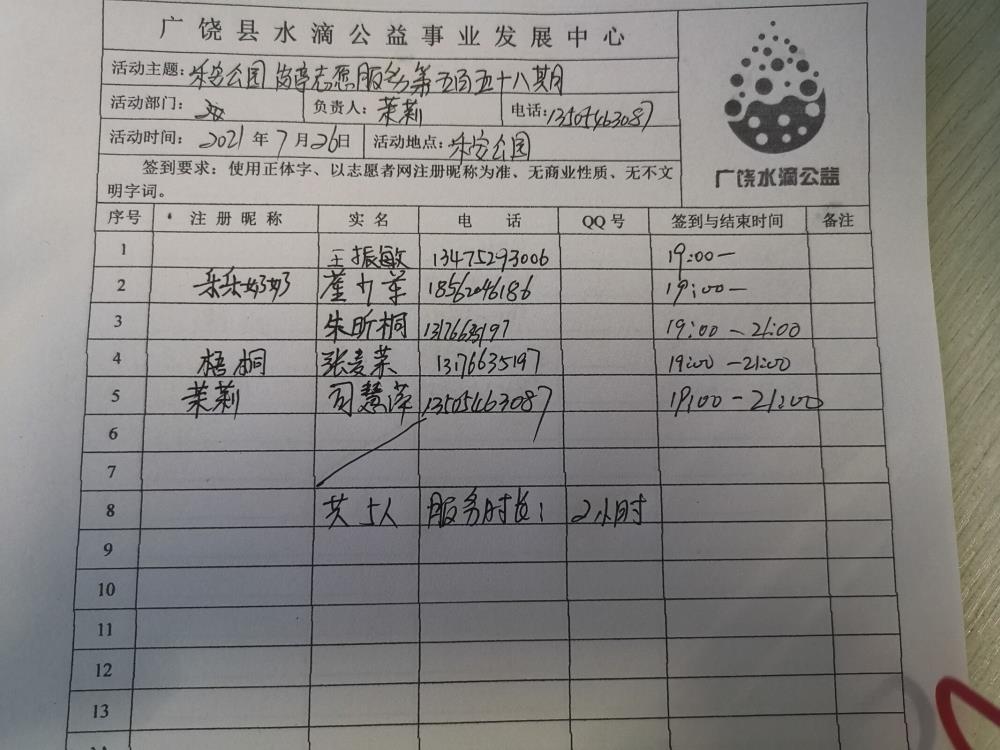 广饶县水滴公益事业发展中心
活动主题：乐安公园岗亭志愿服务第五百五十八期
活动部门： 负责人：茉莉 电话：13505463087
活动时间：2021年7月26日 活动地点：乐安公园
签到要求：使用正体字、以志愿者网注册昵称为准、无商业性质、无不文
明字词。
广饶水滴公益
序号 注册昵称 实名 电话 QQ号 签到与结束时间 备注
1 王振敏 13475293006 19:00—
2 乐乐奶奶 18562046186 19:00—
3 朱昕桐 13176635197 19:00—21:00
4 梧桐 张麦荣 13176635197 19:00—21:00
5 茉莉 司慧萍 13505463087 19:00—21:00
6
7
8 共5人 服务时长： 2小时
9
10
11
12
13